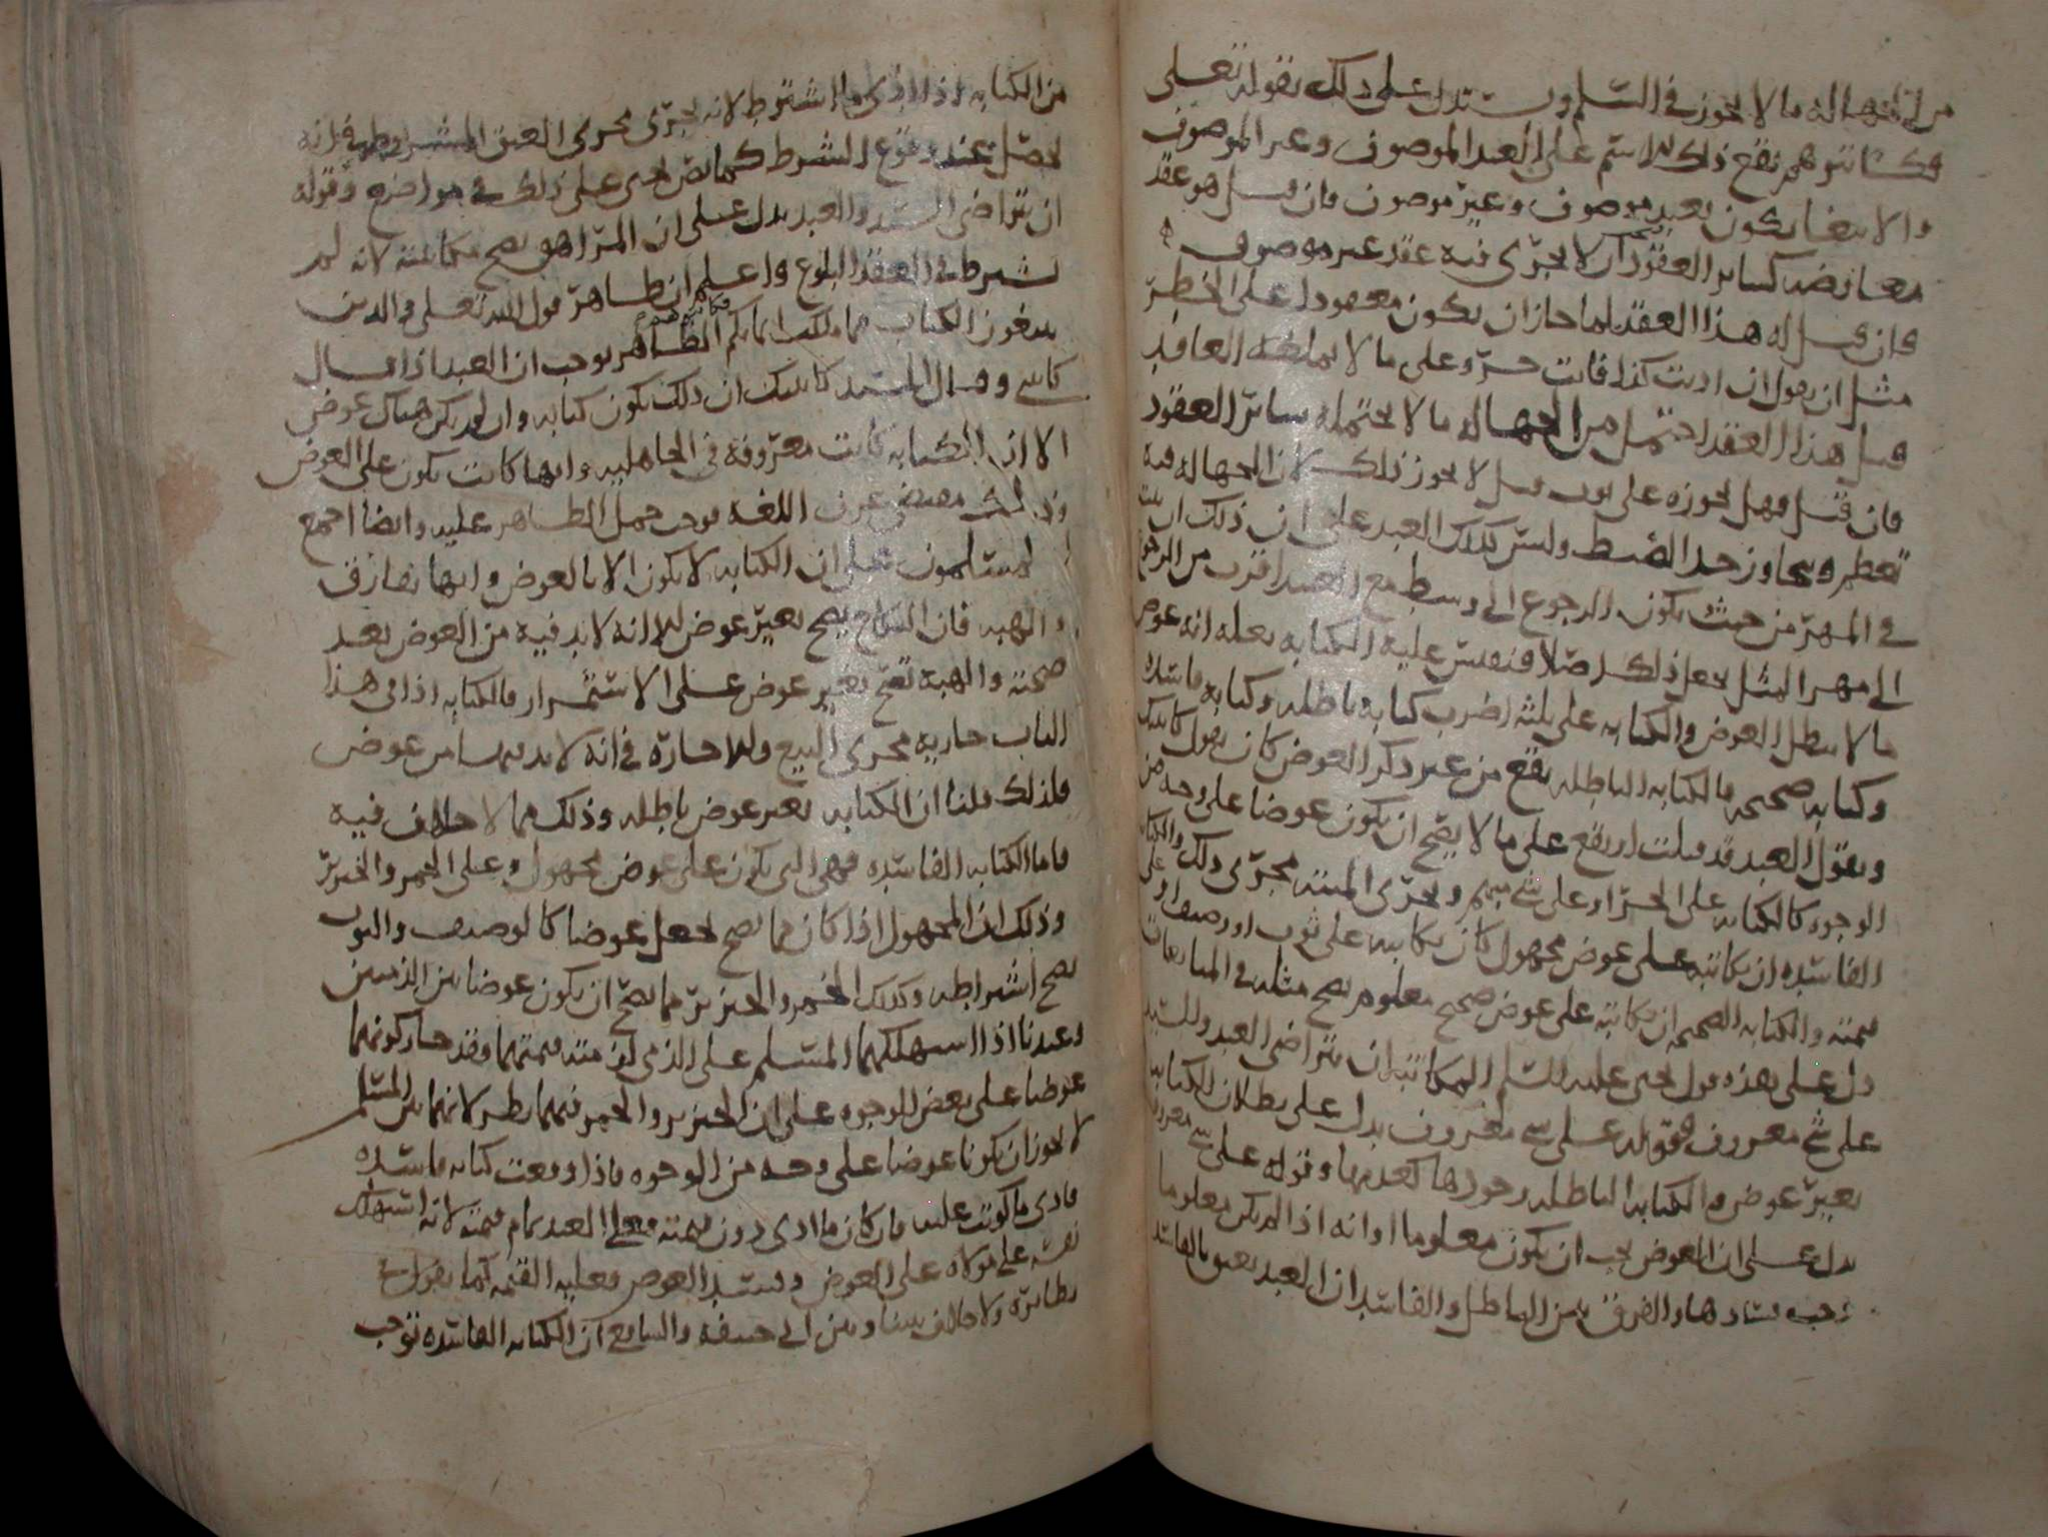 من الجهالة ما لا يجوز في السلم ويستدل على ذلك بقوله تعلى
فكاتبوهم يقع ذلك الاسم على العبد الموصوف وغير الموصوف
والابتغا يكون بعبد موصوف وغير موصوف فان قيل هو عقد
معاوضه كساير العقود لا يجرى فيه عقد غير موصوف
فان قيل له هذا العقد لما جاز ان يكون معقودا على الخطر
مثل ان يقول ان اديت كذا فانت حر وعلى ما لا يملكه العاقد
قيل هذا العقد احتمل من الجهالة ما لا يحتمله سائر العقود
فان قيل فهل يجوزه على ثوب قيل لا يجوز ذلك لان الجهاله فيه
تعظم ويتجاوز حد الضبط وليس كذلك العبد على ان ذلك ان
في المهر من حيث يكون الرجوع الى وسط مع العبد اقرب من الرجوع
الى مهر المثل يجعل ذلك اصلا فنقيس عليه الكتابه بعله انه عوض
ما لا يبطل العوض والكتابه على ثلثه اضرب كتابه باطله وكتابه فاسده
وكتابه صحيحه فالكتابه الباطله يقع من غير ذكر العوض كان يقول كاتبتك
ويقول العبد قد قبلت او يقع على ما لا يصح ان يكون عوضا على وجه من
الوجوه كالكتابه على الحر او على شي مبهم ويجرى الميته مجرى ذلك والكتابه
الفاسده ان يكاتبه على عوض مجهول كان يكاتبه على ثوب او وصيف او على
قيمته والكتابه الصحيحه ان يكاتبه على عوض صحيح معلوم يصح مثله في المبايعات
دل على هذه قول يحيى عليه السلم المكاتبه ان يتراضى العبد والسيد
على شي معروف فقوله على شي معروف يدل على بطلان الكتابه
بغير عوض والكتابه الباطله وجودها كعدمها وقوله على شي معروف
يدل على ان العوض يجب ان يكون معلوما وانه اذا لم يكن معلوما
وجب فسادها والفرق بين الباطل والفاسد ان العبد يعتق بالفاسد
من الكتابه اذا ادى ما اشترط لانه يجرى مجرى العتق المشروط في انه
يحصل عند وقوع الشرط كما نص يحيى على ذلك في مواضع وقوله
ان يتراضى السيد والعبد يدل على ان المراهق يصح مكاتبته لانه لم
يشرط في العقد البلوغ واعلم ان ظاهر قول الله تعلى والذين
يبتغون الكتاب مما ملكت ايمانكم فكاتبوهم الظاهر يوجب ان العبد اذا قال
كاتبني وقال السيد كاتبتك ان ذلك يكون كتابه وان لم يكن هناك عوض
الا ان الكتابه كانت معروفه في الجاهليه وانها كانت يكون على العوض
وذلك مقتضى عرف اللغه فوجب حمل الظاهر عليه وايضا اجمع
المسلمون على ان الكتابه لا يكون الا بالعوض وانها تفارق
والهبه فان النكاح يصح بغير عوض الا انه لا بد فيه من العوض بعد
صحته والهبه تصح بغير عوض على الاستمرار فالكتابه اذا في هذا
الباب جاريه مجرى البيع والاجاره في انه لا بد فيها من عوض
فلذلك قلنا ان الكتابه بغير عوض باطله وذلك مما لا خلاف فيه
فاما الكتابه الفاسده فهي التي يكون على عوض مجهول وعلى الخمر والخنزير
وذلك ان المجهول اذا كان مما يصح يجعل عوضا كالوصيف والثوب
يصح اشراطه وكذلك الخمر والخنزير مما يصح ان يكون عوضا بين الذميين
وعندنا اذا استهلكهما المسلم على الذمي لزمته قيمتهما وقد جاز كونهما
عوضا على بعض الوجوه على ان الخنزير والخمر فيهما نظر لانهما بين المسلم
لا يجوز ان يكونا عوضا على وجه من الوجوه فاذا وقعت كتابه فاسده
فادى ما كوتب عليه فان كان ما ادى دون قيمته فعلى العبد تمام قيمته لانه استهلك
نفسه على مولاه على العوض وفسد العوض فعليه القيمه كما يقول في
نظائره ولا خلاف بيننا وبين ابي حنيفه والشافعي ان الكتابه الفاسده توجب